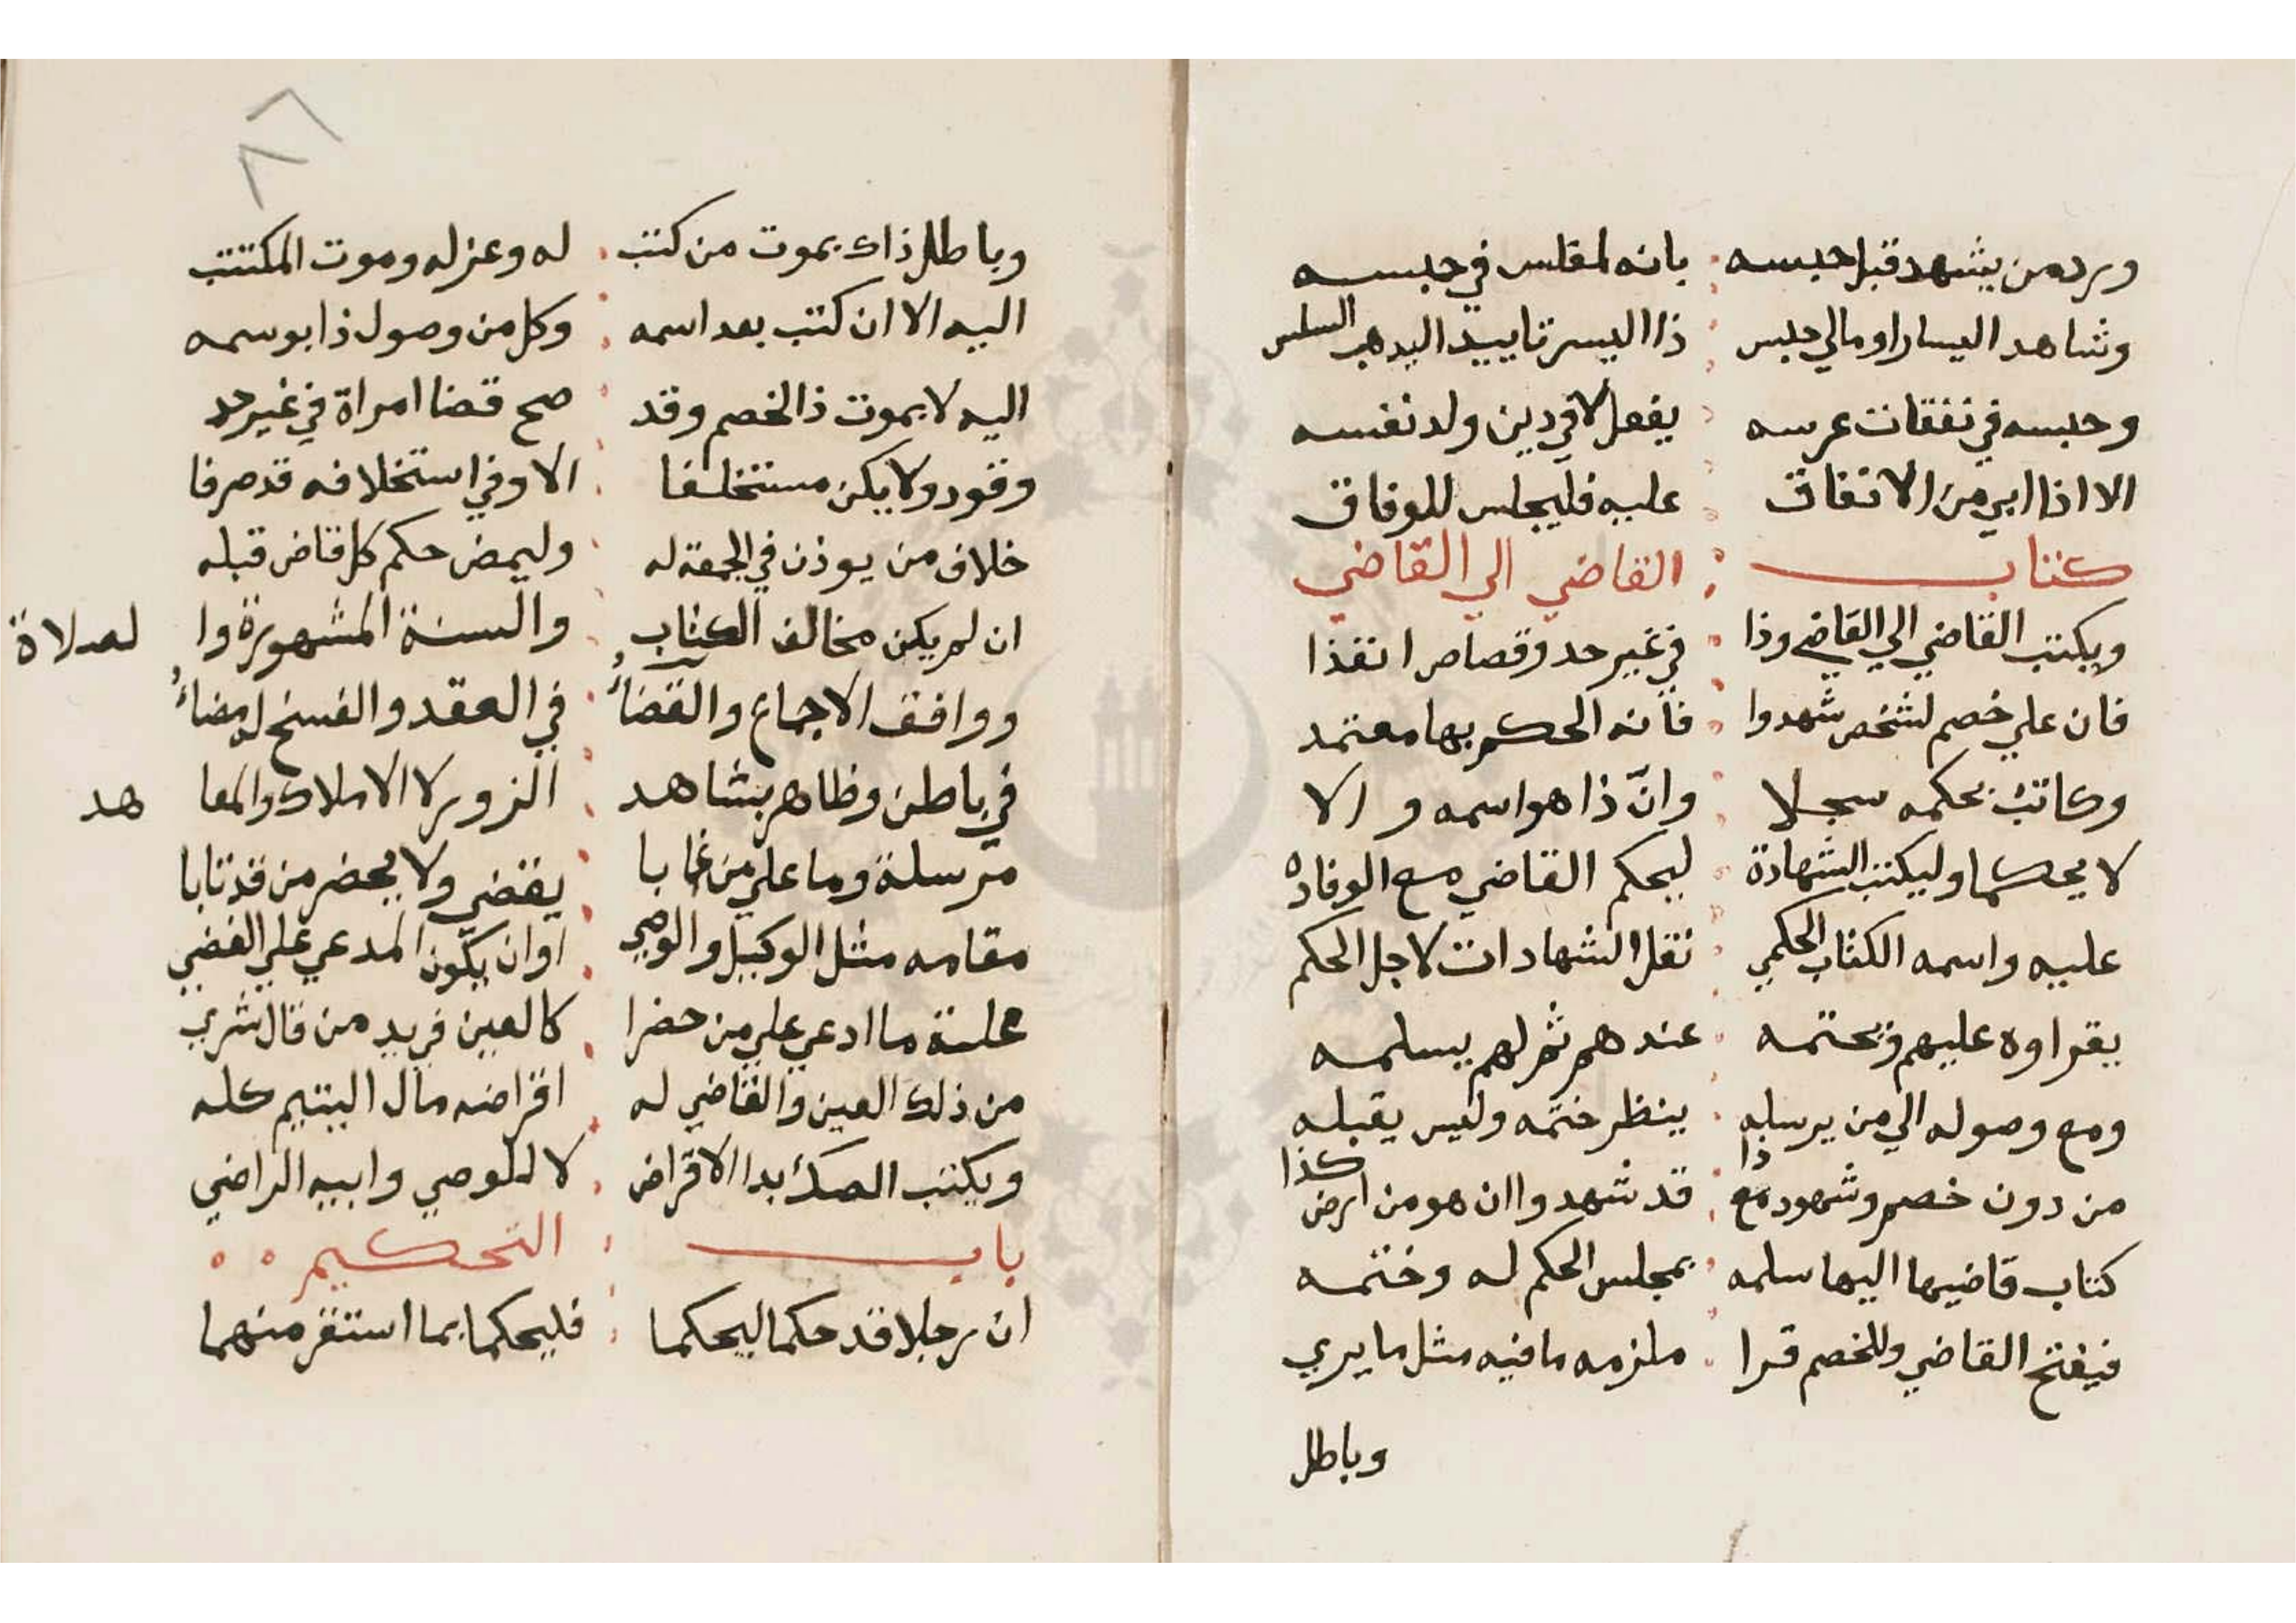 ورد من يشهد قبل حبسه بانه لمفلس في حبسه
وشاهد اليسار اومالي حبس ذا اليسر تاييد
وحبسه في نفقات عرسه يفعل لا في دين ولد نفسه
الا اذا ابي من الانفاق عليه فليجلس للوفاق
كتاب القاضي الي القاضي
ويكتب القاضي الي القاضي وذا في غير حد وقصاص انفذا
فان علي خصم لشخص شهدوا فانه الحكم بها معتمد
وكاتب بحكمه سجلا وانّ ذا هو اسمه و الا
لا يحكما وليكتب الشهادة ليحكم القاضي مع الوفاده
عليه واسمه الكتاب الحكمي نقل الشهادات لاجل الحكم
يقراوه عليهم ويختمه عندهم ثم لهم يسلمه
ومع وصوله الي من يرسله ينظر ختمه وليس يقبله
من دون خصم وشهود مع ذا قد شهدوا ان هو من ارض كذا
كتاب قاضيها اليها سلمه بمجلس الحكم له وختمه
فيفتح القاضي وللخصم قرا ملزمه ما فيه مثل ما يري
وباطل
٨٦
وباطل ذاك بموت من كتب له وعزله وموت المكتتب
اليه الا ان كتب بعد اسمه وكل من وصول ذا بوسمه
اليه لا بموت ذا الخصم وقد صح قضا امراة في غير حد
وقود ولا يكن مستخلفا الا وفي استخلافه قد صرفا
خلاف من يوذن في الجمعة له وليمض حكم كل قاض قبله
ان لم يكن مخالف الكتاب والسنة المشهورة وا لصلاة
ووافق الاجماع والقضاءُ في العقد والفسخ له مضاءُ
في باطن وظاهر بشاهد الزور لا الاملاك والمعا هد
مرسلة وما علي من غابا يقضي ولا يحضر من قد نابا
مقامه مثل الوكيل والوصي اوان يكون المدعي علي
ما ادعي علي من حضرا كالعين في يد من قال شري
من ذلك العين والقاضي له اقراضه مال اليتيم كله
ويكتب الصك بدا الاقراض لا للوصي وابيه الراضي
باب التحكيم
ان رجلا قد حكما ليحكما فليحكما بما استقر منهما